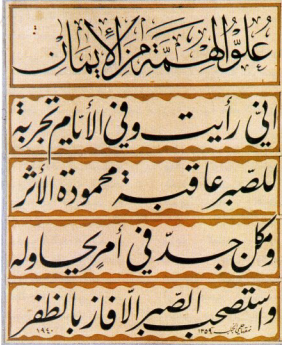 علو الهمة من الإيمان
اني رأيت وفي الأيام تجربة
للصبر عاقبة محمودة الأثر
وكل من جد في أمر يحاوله
واستصحب الصبر الا فاز بالظفر
١٣٥٩
١٩٤٠